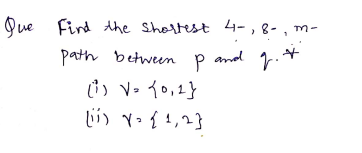 Que Find the shortest 4-, 8-, m-
path between p and q.
(i) V = {0,1}
(ii) V = {1,2}